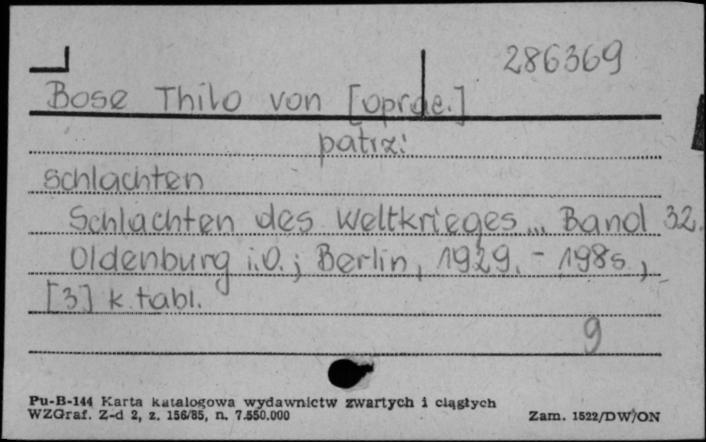 286369
Bose Thilo von [oprac.]
patrz:
schlachten
Schlachten des Weltkrieges... Band 32.
Oldenburg i.O.; Berlin, 1929. - 198s.,
[3] k. tabl.
9
Pu-B-144 Karta katalogowa wydawnictw zwartych i ciągłych
WZGraf. Z-d 2, z. 156/85, n. 7.550.000
Zam. 1522/DW/ON